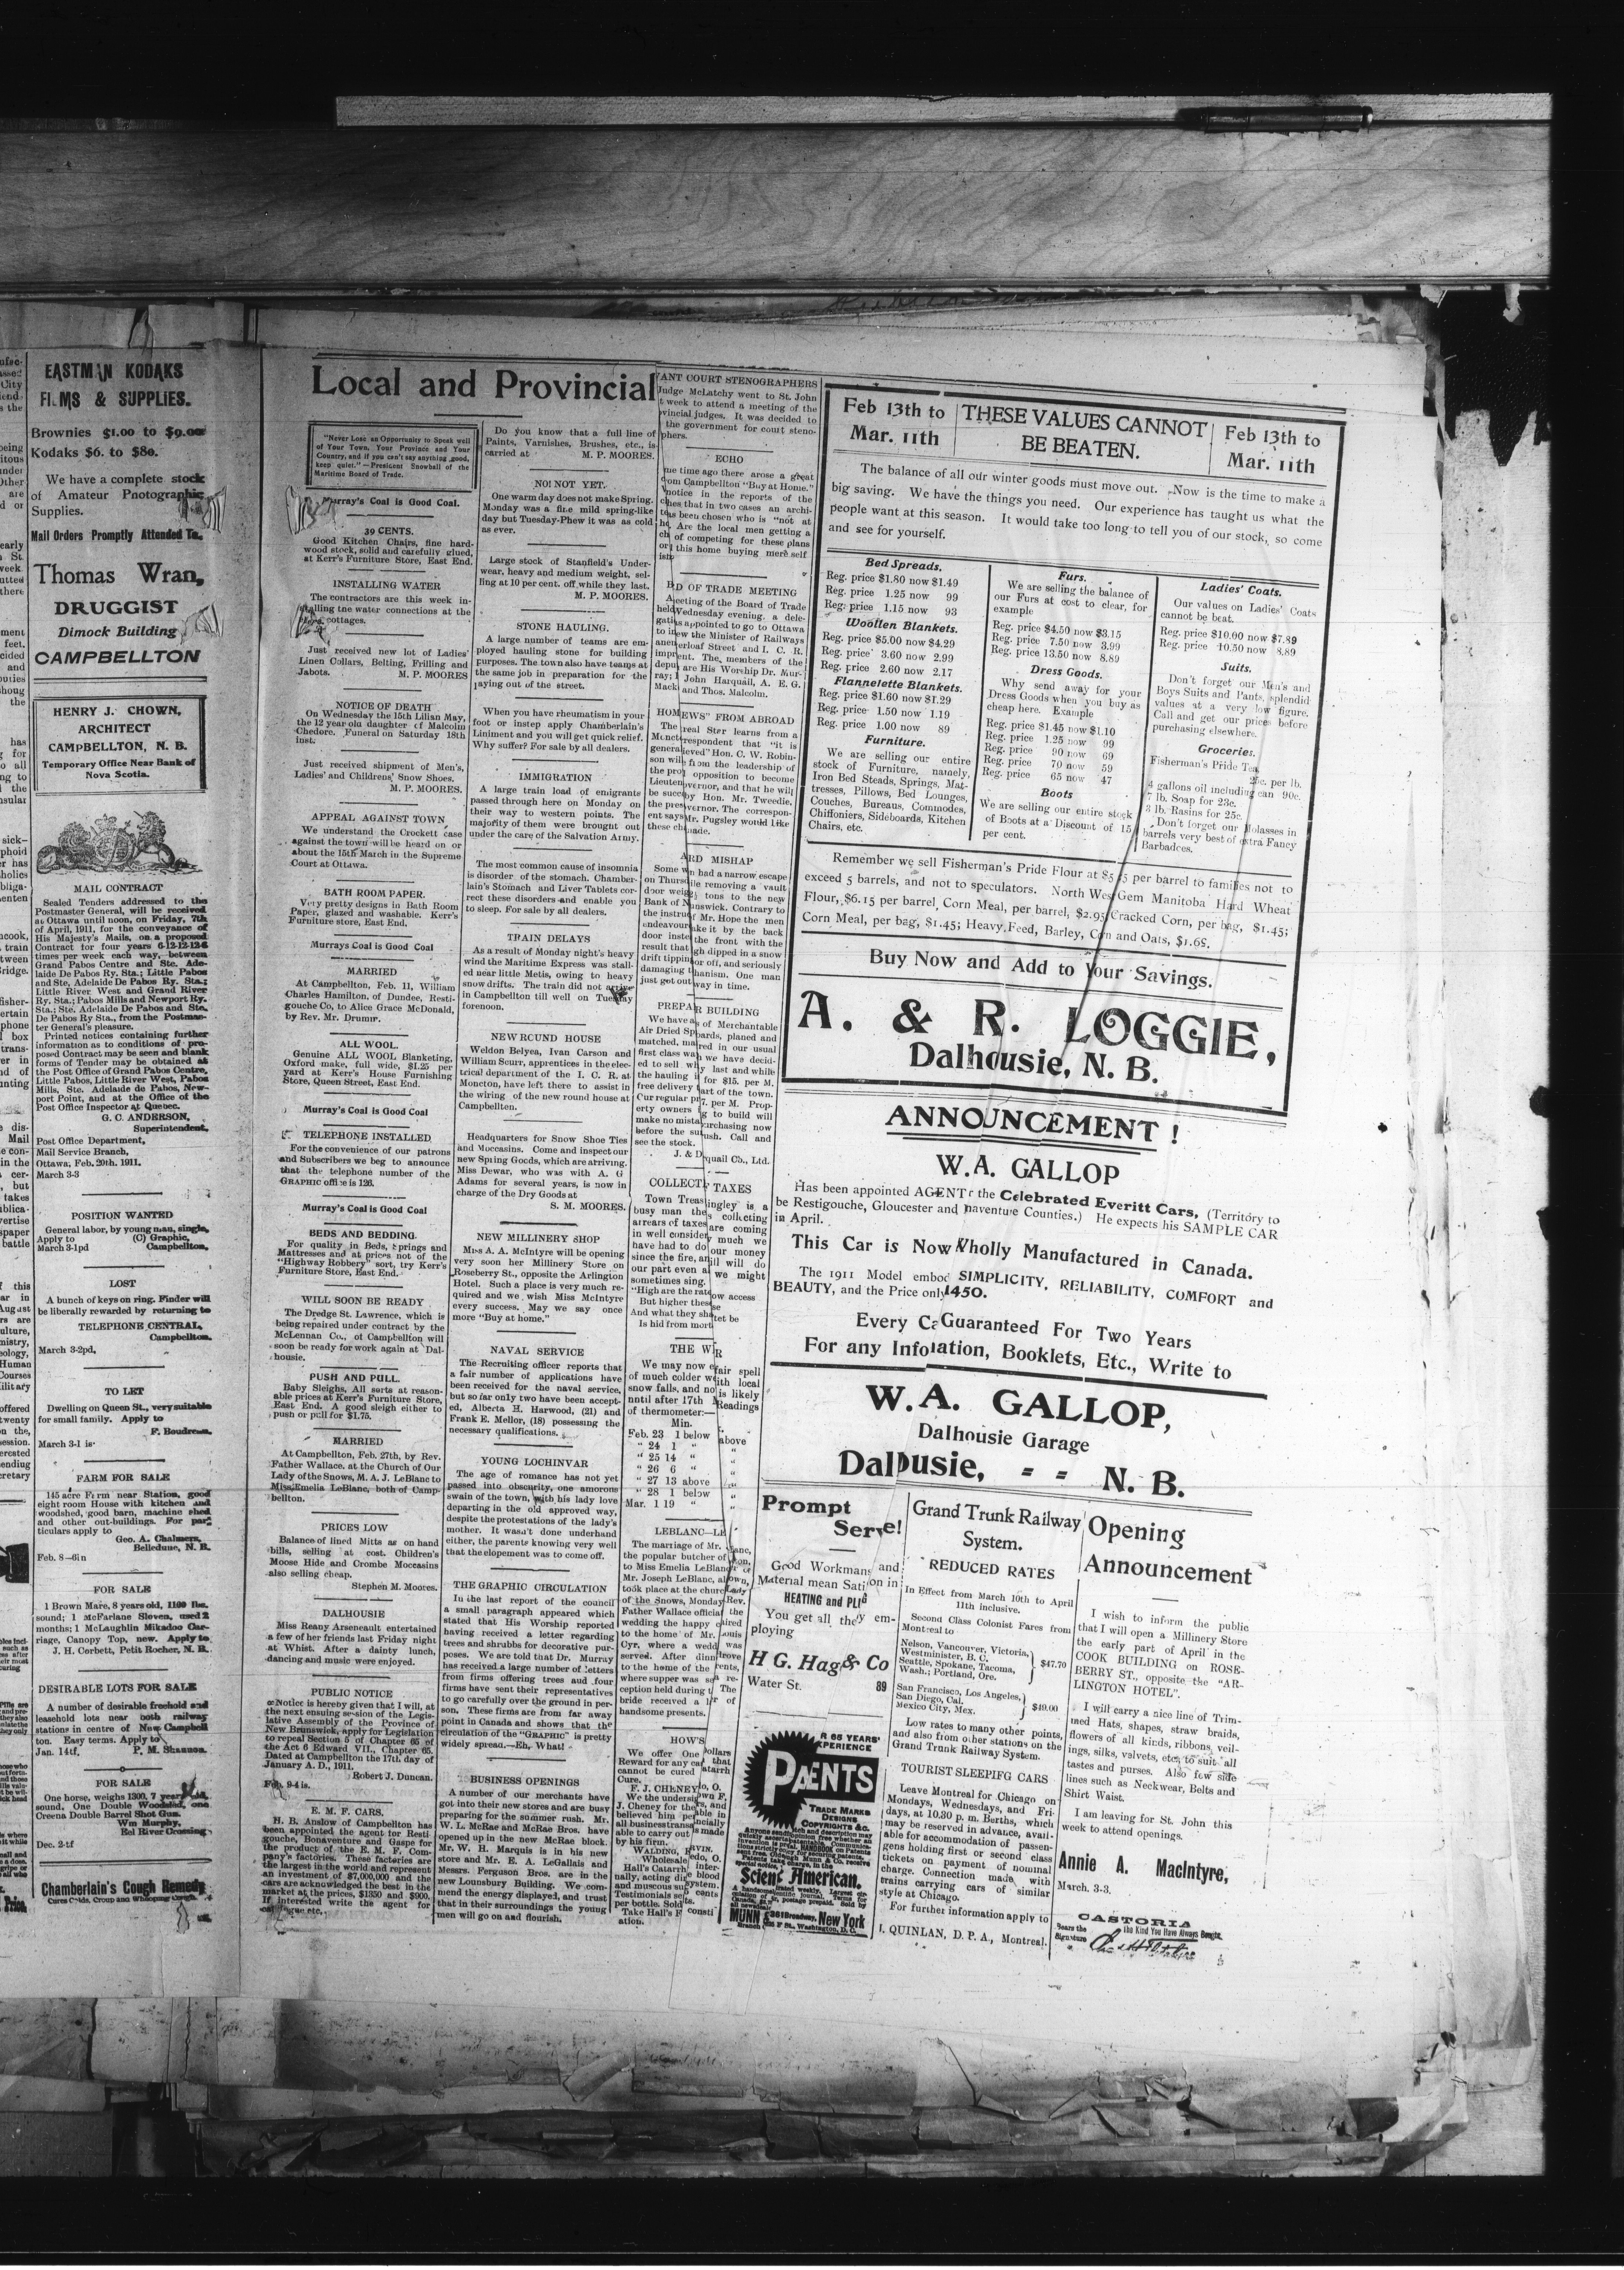 EASTMAN KODAKS
FILMS & SUPPLIES.
Brownies $1.00 to $9.00
Kodaks $6. to $80.
We have a complete stock
of Amateur Pnotographic
Supplies.
Mail Orders Promptly Attended To.
Thomas Wran,
DRUGGIST
Dimock Building
CAMPBELLTON
HENRY J. CHOWN,
ARCHITECT
CAMPBELLTON, N. B.
Temporary Office Near Bank of
Nova Scotia.
MAIL CONTRACT
Sealed Tenders addressed to the
Postmaster General, will be received
at Ottawa until noon, on Friday, 7th
of April, 1911, for the conveyance of
His Majesty's Mails, on a proposed
Contract for four years 6-12-12-12-6
times per week each way, between
Grand Pabos Centre and Ste. Ade-
laide De Pabos Ry. Sta.; Little Pabos
and Ste, Adelaide De Pabos Ry. Sta.;
Little River West and Grand River
Ry. Sta.; Pabos Mills and Newport Ry.
Sta.; Ste. Adelaide De Pabos and Ste.
De Pabos Ry Sta., from the Postmas-
ter General's pleasure.
Printed notices containing further
information as to conditions of pro-
posed Contract may be seen and blank
forms of Tender may be obtained at
the Post Office of Grand Pabos Centre,
Little Pabos, Little River West, Pabos
Mills, Ste. Adelaide de Pabos, New-
port Point, and at the Office of the
Post Office Inspector at Quebec.
G. C. ANDERSON,
Superintendent.
Post Office Department,
Mail Service Branch,
Ottawa, Feb. 20th. 1911.
March 3-3
POSITION WANTED
General labor, by young man, single,
Apply to (C) Graphic,
March 3-1pd Campbellton,
LOST
A bunch of keys on ring. Finder will
be liberally rewarded by returning to
TELEPHONE CENTRAL,
Campbellton.
March 3-2pd,
TO LET
Dwelling on Queen St., very suitable
for small family. Apply to
F. Boudreau.
March 3-1 is
FARM FOR SALE
145 acre Farm near Station, good
eight room House with kitchen and
woodshed, good barn, machine shed
and other out-buildings. For par-
ticulars apply to
Geo. A. Chalmers,
Belledune, N. B.
Feb. 8-6in
FOR SALE
1 Brown Mare, 8 years old, 1100 lbs.
sound; 1 McFarlane Sloven, used 2
months; 1 McLaughlin Mikadoo Car-
riage, Canopy Top, new. Apply to
J. H. Corbett, Petit Rocher, N. B.
DESIRABLE LOTS FOR SALE
A number of desirable freehold and
leasehold lots near both railway
stations in centre of New Campbell
ton. Easy terms. Apply to
Jan. 14tf. P. M. Shannon.
FOR SALE
One horse, weighs 1300, 7 years old,
sound, One Double Woodsled, one
Creena Double Barrel Shot Gun.
Wm Murphy,
Eel River Crossing
Dec. 2-tf
Chamberlain's Cough Remedy
Cures Colds, Croup and Whooping Cough.
Local and Provincial
"Never Lose an Opportunity to Speak well
of Your Town, Your Province and Your
Country, and if you can't say anything good,
keep quiet."—President Snowball of the
Maritime Board of Trade.
Murray's Coal is Good Coal.
39 CENTS.
Good Kitchen Chairs, fine hard-
wood stock, solid and carefully glued,
at Kerr's Furniture Store, East End.
INSTALLING WATER
The contractors are this week in-
stalling tne water connections at the
cottages.
Just received new lot of Ladies'
Linen Collars, Belting, Frilling and
Jabots. M. P. MOORES
NOTICE OF DEATH
On Wednesday the 15th Lilian May,
the 12 year old daughter of Malcolm
Chedore. Funeral on Saturday 18th
inst.
Just received shipment of Men's,
Ladies' and Childrens' Snow Shoes.
M. P. MOORES.
APPEAL AGAINST TOWN
We understand the Crockett case
against the town will be heard on or
about the 15th March in the Supreme
Court at Ottawa.
BATH ROOM PAPER.
Very pretty designs in Bath Room
Paper, glazed and washable. Kerr's
Furniture store, East End.
Murrays Coal is Good Coal
MARRIED
At Campbellton, Feb. 11, William
Charles Hamilton, of Dundee, Resti-
gouche Co, to Alice Grace McDonald,
by Rev. Mr. Drumm.
ALL WOOL.
Genuine ALL WOOL Blanketing,
Oxford make, full wide, $1.25 per
yard at Kerr's House Furnishing
Store, Queen Street, East End.
Murray's Coal is Good Coal
TELEPHONE INSTALLED
For the convenience of our patrons
and Subscribers we beg to announce
that the telephone number of the
GRAPHIC office is 126.
Murray's Coal is Good Coal
BEDS AND BEDDING.
For quality in Beds, Springs and
Mattresses and at prices not of the
"Highway Robbery" sort, try Kerr's
Furniture Store, East End.
WILL SOON BE READY
The Dredge St. Lawrence, which is
being repaired under contract by the
McLennan Co., of Campbellton will
soon be ready for work again at Dal-
housie.
PUSH AND PULL.
Baby Sleighs, All sorts at reason-
able prices at Kerr's Furniture Store,
East End. A good sleigh either to
push or pull for $1.75.
MARRIED
At Campbellton, Feb. 27th, by Rev.
Father Wallace. at the Church of Our
Lady of the Snows, M. A. J. LeBlanc to
Miss Emelia LeBlanc, both of Camp-
bellton.
PRICES LOW
Balance of lined Mitts as on hand
bills, selling at cost. Children's
Moose Hide and Crombe Moccasins
also selling cheap.
Stephen M. Moores.
DALHOUSIE
Miss Reany Arseneault entertained
a few of her friends last Friday night
at Whist. After a dainty lunch,
dancing and music were enjoyed.
PUBLIC NOTICE
Notice is hereby given that I will, at
the next ensuing session of the Legis-
lative Assembly of the Province of
New Brunswick, apply for Legislation
to repeal Section 5 of Chapter 65 of
the Act 6 Edward VII., Chapter 65.
Dated at Campbellton the 17th day of
January A. D., 1911.
Robert J. Duncan.
Feb. 9-4 is.
E. M. F. CARS.
H. B. Anslow of Campbellton has
been appointed the agent for Resti-
gouche, Bonaventure and Gaspe for
the product of the E. M. F. Com-
pany's factories. These factories are
the largest in the world and represent
an investment of $7,000,000 and the
cars are acknowledged the best in the
market at the prices, $1350 and $900.
If interested write the agent for
catalogue etc.
Do you know that a full line of
Paints, Varnishes, Brushes, etc., is
carried at M. P. MOORES.
NO! NOT YET.
One warm day does not make Spring.
Monday was a fine mild spring-like
day but Tuesday-Phew it was as cold
as ever.
Large stock of Stanfield's Under-
wear, heavy and medium weight, sel-
ling at 10 per cent. off while they last.
M. P. MOORES.
STONE HAULING.
A large number of teams are em-
ployed hauling stone for building
purposes. The town also have teams at
the same job in preparation for the
laying out of the street.
When you have rheumatism in your
foot or instep apply Chamberlain's
Liniment and you will get quick relief.
Why suffer? For sale by all dealers.
IMMIGRATION
A large train load of emigrants
passed through here on Monday on
their way to western points. The
majority of them were brought out
under the care of the Salvation Army.
The most common cause of insomnia
is disorder of the stomach. Chamber-
lain's Stomach and Liver Tablets cor-
rect these disorders and enable you
to sleep. For sale by all dealers.
TRAIN DELAYS
As a result of Monday night's heavy
wind the Maritime Express was stall-
ed near little Metis, owing to heavy
snow drifts. The train did not arrive
in Campbellton till well on Tuesday
forenoon.
NEW ROUND HOUSE
Weldon Belyea, Ivan Carson and
William Scurr, apprentices in the elec-
trical department of the I. C. R. at
Moncton, have left there to assist in
the wiring of the new round house at
Campbellton.
Headquarters for Snow Shoe Ties
and Moccasins. Come and inspect our
new Spring Goods, which are arriving.
Miss Dewar, who was with A. G
Adams for several years, is now in
charge of the Dry Goods at
S. M. MOORES.
NEW MILLINERY SHOP
Miss A. A. McIntyre will be opening
very soon her Millinery Store on
Roseberry St., opposite the Arlington
Hotel. Such a place is very much re-
quired and we wish Miss McIntyre
every success. May we say once
more "Buy at home."
NAVAL SERVICE
The Recruiting officer reports that
a fair number of applications have
been received for the naval service,
but so far only two have been accept-
ed, Alberta H. Harwood, (21) and
Frank E. Mellor, (18) possessing the
necessary qualifications.
YOUNG LOCHINVAR
The age of romance has not yet
passed into obscurity, one amorous
swain of the town, with his lady love
departing in the old approved way,
despite the protestations of the lady's
mother. It wasn't done underhand
either, the parents knowing very well
that the elopement was to come off.
THE GRAPHIC CIRCULATION
In the last report of the council
a small paragraph appeared which
stated that His Worship reported
having received a letter regarding
trees and shrubbs for decorative pur-
poses. We are told that Dr. Murray
has received a large number of letters
from firms offering trees and four
firms have sent their representatives
to go carefully over the ground in per-
son. These firms are from far away
point in Canada and shows that the
circulation of the "GRAPHIC" is pretty
widely spread.—Eh, What!
BUSINESS OPENINGS
A number of our merchants have
got into their new stores and are busy
preparing for the summer rush. Mr.
W. L. McRae and McRae Bros. have
opened up in the new McRae block.
Mr. W. H. Marquis is in his new
store and Mr. E. A. LeGallais and
Messrs. Ferguson Bros. are in the
new Lounsbury Building. We com-
mend the energy displayed, and trust
that in their surroundings the young
men will go on and flourish.
ANT COURT STENOGRAPHERS
Judge McLatchy went to St. John
week to attend a meeting of the
vincial judges. It was decided to
the government for court steno-
phers.
ECHO
me time ago there arose a great
om Campbellton "Buy at Home."
notice in the reports of the
ches that in two cases an archi-
has been chosen who is "not at
Are the local men getting a
of competing for these plans
this home buying mere self
RD OF TRADE MEETING
eeting of the Board of Trade
held Wednesday evening. a dele-
appointed to go to Ottawa
to iew the Minister of Railways
anen erloaf Street and I. C. R.
impr ent. The members of the
depu are His Worship Dr. Mur-
ray; John Harquail, A. E. G.
Mack and Thos. Malcolm.
HOM EWS" FROM ABROAD
The real Star learns from a
Monct respondent that "it is
general ieved" Hon. C. W. Robin-
son will from the leadership of
the pro opposition to become
Lieuten vernor, and that he will
be succ by Hon. Mr. Tweedie,
the pres vernor. The correspon-
ent says Mr. Pugsley would like
these ch made.
ARD MISHAP
Some n had a narrow escape
on Thurs ile removing a vault
door weig tons to the new
Bank of N nswick. Contrary to
the instru f Mr. Hope the men
endeavour ake it by the back
door inste the front with the
result that gh dipped in a snow
drift tippin or off, and seriously
damaging t hanism. One man
just got out way in time.
PREPAR BUILDING
We have a s of Merchantable
Air Dried Sp oards, planed and
matched, ma red in our usual
first class wa h we have decid-
ed to sell wh y last and while
the hauling i for $15. per M.
free delivery art of the town.
Our regular pr 7. per M. Prop-
erty owners g to build will
make no mista urchasing now
before the su ush. Call and
see the stock.
J. & D quail Co., Ltd.
COLLECT TAXES
Town Treas ingley is a
busy man the s collecting
arrears of taxes are coming
in well consider y much we
have had to do our money
since the fire, an ill will do
our part even a we might
sometimes sing.
"High are the rate ow access
But higher these se
And what they sha tet be
Is hid from mort
THE W R
We may now e fair spell
of much colder w ith local
snow falls, and no is likely
until after 17th Readings
of thermometer:—
Min.
Feb. 23 1 below above
" 24 1 "
" 25 14 "
" 26 6 "
" 27 13 above
" 28 1 below
Mar. 1 19 "
LEBLANC—LE
The marriage of Mr. lanc,
the popular butcher of on,
to Miss Emelia LeBlanc r of
Mr. Joseph LeBlanc, al own,
took place at the church Lady
of the Snows, Monday Rev.
Father Wallace official the
wedding the happy c aired
to the home of Mr. Louis
Cyr, where a wedd was
served. After dinn drove
to the home of the rents,
where supper was se a re-
ception held during t The
bride received a l r of
handsome presents.
HOW'S
We offer One ollars
Reward for any ca that
cannot be cured atarrh
Cure.
F. J. CHENEY o, O.
We the undersig wn F,
J. Cheney for the rs, and
believed him per ble in
all business transa ncially
able to carry out s made
by his firm.
WALDING, RVIN.
Wholesale edo, O.
Hall's Catarrh inter-
nally, acting dir e blood
and muscous su system.
Testimonials se cents
per bottle. Sold ts.
Take Hall's F consti
ation.
Feb 13th to
Mar. 11th
THESE VALUES CANNOT
BE BEATEN.
Feb 13th to
Mar. 11th
The balance of all our winter goods must move out. Now is the time to make a
big saving. We have the things you need. Our experience has taught us what the
people want at this season. It would take too long to tell you of our stock, so come
and see for yourself.
Bed Spreads.
Reg. price $1.80 now $1.49
Reg. price 1.25 now 99
Reg. price 1.15 now 93
Woollen Blankets.
Reg. price $5.00 now $4.29
Reg. price 3.60 now 2.99
Reg. price 2.60 now 2.17
Flannelette Blankets.
Reg. price $1.60 now $1.29
Reg. price 1.50 now 1.19
Reg. price 1.00 now 89
Furniture.
We are selling our entire
stock of Furniture, namely,
Iron Bed Steads, Springs, Mat-
tresses, Pillows, Bed Lounges,
Couches, Bureaus, Commodes,
Chiffoniers, Sideboards, Kitchen
Chairs, etc.
Furs.
We are selling the balance of
our Furs at cost to clear, for
example
Reg. price $4.50 now $3.15
Reg. price 7.50 now 3.99
Reg. price 13.50 now 8.89
Dress Goods.
Why send away for your
Dress Goods when you buy as
cheap here. Example
Reg. price $1.45 now $1.10
Reg. price 1.25 now 99
Reg. price 90 now 69
Reg. price 70 now 59
Reg. price 65 now 47
Boots
We are selling our entire stock
of Boots at a Discount of 15
per cent.
Ladies' Coats.
Our values on Ladies' Coats
cannot be beat.
Reg. price $10.00 now $7.89
Reg. price 10.50 now 8.89
Suits.
Don't forget our Men's and
Boys Suits and Pants, splendid
values at a very low figure.
Call and get our prices before
purchasing elsewhere.
Groceries.
Fisherman's Pride Tea,
25c. per lb.
4 gallons oil including can 90c.
7 lb. Soap for 23c.
3 lb. Rasins for 25c.
Don't forget our Molasses in
barrels very best of extra Fancy
Barbadoes.
Remember we sell Fisherman's Pride Flour at per barrel to families not to
exceed 5 barrels, and not to speculators. North West Gem Manitoba Hard Wheat
Flour, $6.15 per barrel, Corn Meal, per barrel, $2.95 Cracked Corn, per bag, $1.45;
Corn Meal, per bag, $1.45; Heavy Feed, Barley, Corn and Oats, $1.65.
Buy Now and Add to Your Savings.
A. & R. LOGGIE,
Dalhousie, N. B.
ANNOUNCEMENT !
W. A. GALLOP
Has been appointed AGENT r the Celebrated Everitt Cars, (Territory to
be Restigouche, Gloucester and naventure Counties.) He expects his SAMPLE CAR
in April.
This Car is Now Wholly Manufactured in Canada.
The 1911 Model embod SIMPLICITY, RELIABILITY, COMFORT and
BEAUTY, and the Price only 1450.
Every Ca Guaranteed For Two Years
For any Info ation, Booklets, Etc., Write to
W. A. GALLOP,
Dalhousie Garage
Dal ousie, = = N. B.
Prompt
Serv e!
Good Workmans and
Material mean Sati on in
HEATING and PL G
You get all they em-
ploying
H G. Hag & Co
Water St. 89
R 65 YEARS'
XPERIENCE
PATENTS
TRADE MARKS
DESIGNS
COPYRIGHTS &C.
Scien American.
MUNN & 361 Broadway, New York
Grand Trunk Railway
System.
REDUCED RATES
In Effect from March 10th to April
11th inclusive.
Second Class Colonist Fares from
Montreal to
Nelson, Vancouver, Victoria,
Westminister, B. C.
Seattle, Spokane, Tacoma,
Wash.; Portland, Ore. $47.70
San Francisco, Los Angeles,
San Diego, Cal.
Mexico City, Mex. $49.00
Low rates to many other points,
and also from other stations on the
Grand Trunk Railway System.
TOURIST SLEEPIFG CARS
Leave Montreal for Chicago on
Mondays, Wednesdays, and Fri-
days, at 10.30 p. m. Berths, which
may be reserved in advance, avail-
able for accommodation of passen-
gens holding first or second class
tickets on payment of nominal
charge. Connection made with
trains carrying cars of similar
style at Chicago.
For further information apply to
J. QUINLAN, D. P. A., Montreal.
Opening
Announcement
I wish to inform the public
that I will open a Millinery Store
the early part of April in the
COOK BUILDING on ROSE-
BERRY ST., opposite the "AR-
LINGTON HOTEL".
I will carry a nice line of Trim-
med Hats, shapes, straw braids,
flowers of all kinds, ribbons, veil-
ings, silks, valvets, etc., to suit all
tastes and purses. Also few side
lines such as Neckwear, Belts and
Shirt Waist.
I am leaving for St. John this
week to attend openings.
Annie A. MacIntyre,
March. 3-3.
CASTORIA
Bears the The Kind You Have Always Bought
Signature